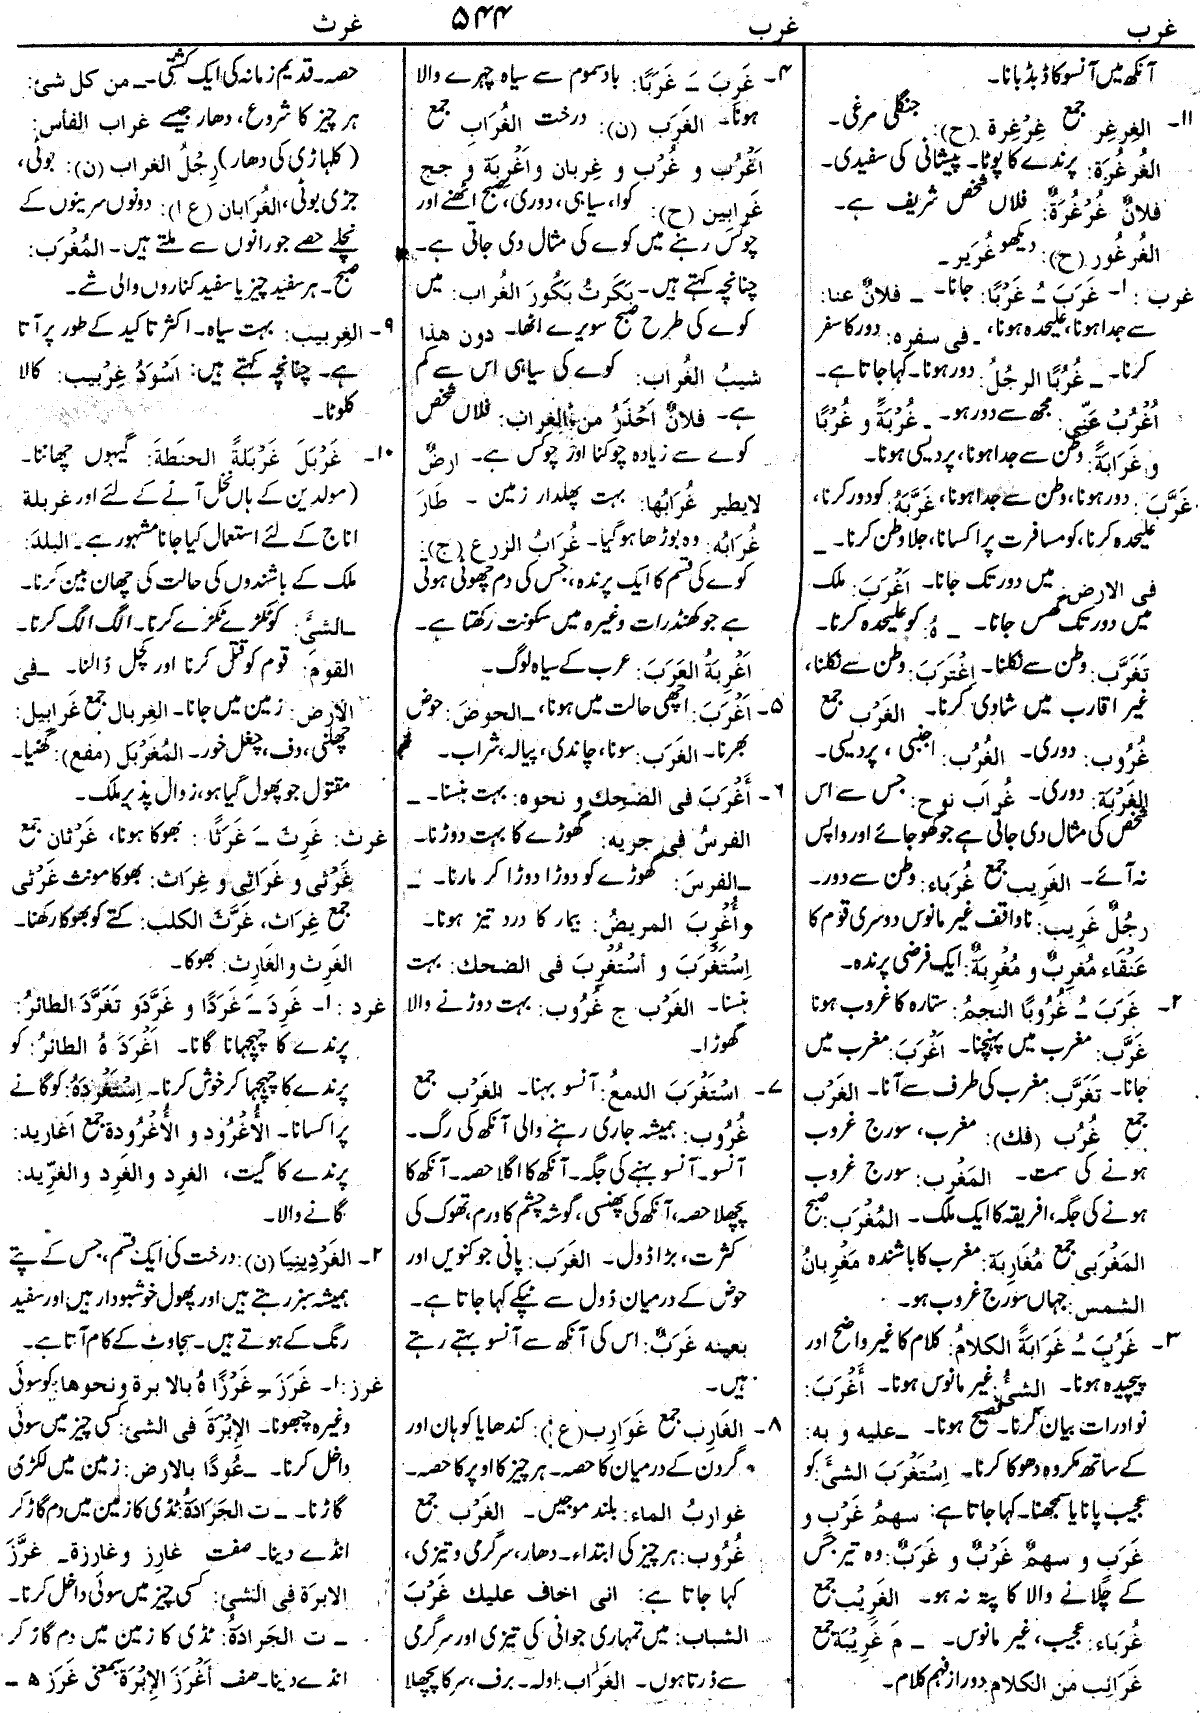 غرب
غرب
۵۴۴
غرث
آنکھ میں آنسو کا ڈبڈبانا۔
۱۱۔ الغِرغِر جمع غِرْغِرة (ح): جنگلی مرغی۔
الغُرغُرَة: پرندے کا پوٹا۔ پیشانی کی سفیدی۔
فلانٌ غُرْغُرَةٌ: فلاں شخص شریف ہے۔
الغُرغُور (ح): دیکھو غُرَیر۔
غرب : ۱۔ غَرَبَ ـُ غَرْبًا: جانا۔ ــ فلانٌ عنا:
سے جدا ہونا، علیحدہ ہونا، ۔فی سفرہ: دور کا سفر
کرنا۔ ــ غُرْبًا الرجلُ: دور ہونا۔ کہا جاتا ہے۔
اُغْرُبْ عَنِّی: مجھ سے دور ہو۔ ــ غُرْبَةً و غُرْبًا
و غَرَابَةً: وطن سے جدا ہونا، پردیسی ہونا۔
غَرَّبَ: دور ہونا، وطن سے جدا ہونا، غَرَّبَهُ: کو دور کرنا،
علیحدہ کرنا، کو مسافرت پر اکسانا، جلا وطن کرنا۔ ــ
فی الارض: میں دور تک جانا۔ اَغْرَبَ: ملک
میں دور تک گھس جانا۔ ــ هُ: کو علیحدہ کرنا۔
تَغَرَّب: وطن سے نکلنا۔ اِغْتَرَبَ: وطن سے نکلنا،
غیر اقارب میں شادی کرنا۔ الغَرْب جمع
غُرُوب: دوری۔ الغُرُب: اجنبی، پردیسی۔
الغُربَة: دوری۔ غُراب نوح: جس سے اس
شخص کی مثال دی جاتی ہے جو کھو جائے اور واپس
نہ آئے۔ الغَریب جمع غُرَباء: وطن سے دور۔
رجُلٌ غَرِیب: ناواقف غیر مانوس دوسری قوم کا
عَنقَاء مُغرِبٌ و مُغْرِبَةٌ: ایک فرضی پرندہ۔
۲۔ غَرَبَ ـُ غُرُوبًا النجمُ: ستارہ کا غروب ہونا
غَرَّب: مغرب میں پہنچنا۔ اَغْرَبَ: مغرب میں
جانا۔ تَغَرَّب: مغرب کی طرف سے آنا۔ الغَرْب
جمع غُرُب (فك): مغرب، سورج غروب
ہونے کی سمت۔ المَغْرِب: سورج غروب
ہونے کی جگہ، افریقہ کا ایک ملک۔ المُغْرَب: صبح
المَغْرِبی جمع مَغَارِبة: مغرب کا باشندہ مَغْرِبانُ
الشمس: جہاں سورج غروب ہو۔
۳۔ غَرُبَ ـُ غَرَابَةً الکلامُ: کلام کا غیر واضح اور
پیچیدہ ہونا۔ الشئُ: غیر مانوس ہونا۔ أَغْرَبَ:
نوادرات بیان کرنا۔ فصیح ہونا۔ ــ علیه و به:
کے ساتھ مکروہ دھوکا کرنا۔ اِسْتَغْرَبَ الشئَ: کو
عجیب پانا یا سمجھنا۔ کہا جاتا ہے: سهمُ غَرْبٍ و
غَرَبٍ و سهمٌ غَرْبٌ و غَرَبٌ: وہ تیر جس
کے چلانے والا کا پتہ نہ ہو۔ الغَرِیْب جمع
غُرباء: عجیب، غیر مانوس۔ ــ مَ غَرِیْبَة جمع
غَرَائِب من الکلام دور از فہم کلام۔
۴۔ غَرِبَ ـَ غَرَبًا: باد سموم سے سیاہ چہرے والا
ہونا۔ الغَرَب (ن): درخت الغُرَاب جمع
اَغْرُب و غُرْب و غِربان و اَغْرِبَة و جج
غَرابین (ح): کوا، سیاہی، دوری، صبح اٹھنے اور
چوکس رہنے میں کوے کی مثال دی جاتی ہے۔
چنانچہ کہتے ہیں۔ بَکَرتُ بُکُورَ الغُراب: میں
کوے کی طرح صبح سویرے اٹھا۔ دون هذا
شیبُ الغُراب: کوے کی سیاہی اس سے کم
ہے۔ فلانٌ اَحْذَرُ من الغراب: فلاں شخص
کوے سے زیادہ چوکنا اور چوکس ہے۔ ارضٌ
لایطیر غُرابُها: بہت پھلدار زمین۔ طَارَ
غُرابُه: وہ بوڑھا ہوگیا۔ غُرابُ الزرع (ح):
کوے کی قسم کا ایک پرندہ، جس کی دم چھوٹی ہوتی
ہے جو کھنڈرات وغیرہ میں سکونت رکھتا ہے۔
اَغْرِبَةُ العَرَب: عرب کے سیاہ لوگ۔
۵۔ اَغْرَبَ: اچھی حالت میں ہونا، ــ الحوضَ: حوض
بھرنا۔ الغَرَب: سونا، چاندی، پیالہ، شراب۔
۶۔ أَغْرَبَ فی الضحِك و نحوه: بہت ہنسنا۔ ــ
الفرسُ فی جریه: گھوڑے کا بہت دوڑنا۔
ــ الفرسَ: گھوڑے کو دوڑا دوڑا کر مارنا۔ ــ
و أُغْرِبَ المریضُ: بیمار کا درد تیز ہونا۔
اِسْتَغْرَبَ و اُسْتُغْرِبَ فی الضحك: بہت
ہنسنا۔ الغَرْب ج غُرُوب: بہت دوڑنے والا
گھوڑا۔
۷۔ اسْتَغْرَبَ الدمعُ: آنسو بہنا۔ الغَرْب جمع
غُرُوب: ہمیشہ جاری رہنے والی آنکھ کی رگ۔
آنسو۔ آنسو بہنے کی جگہ۔ آنکھ کا اگلا حصہ۔ آنکھ کا
پچھلا حصہ، آنکھ کی پھنسی، گوشہ چشم کا ورم، تھوک کی
کثرت، بڑا ڈول۔ الغَرَب: پانی جو کنویں اور
حوض کے درمیان ڈول سے ٹپکے کہا جاتا ہے۔
بعینه غَرَبٌ: اس کی آنکھ سے آنسو بہتے رہتے
ہیں۔
۸۔ الغَارِب جمع غَوَارِب (ع ا): کندھا یا کوہان اور
گردن کے درمیان کا حصہ۔ ہر چیز کا اوپر کا حصہ۔
غواربُ الماء: بلند موجیں۔ الغَرْب جمع
غُرُوب: ہر چیز کی ابتداء۔ دھار، سرگرمی و تیزی،
کہا جاتا ہے: انی اخاف علیك غَرْبَ
الشباب: میں تمہاری جوانی کی تیزی اور سرگرمی
سے ڈرتا ہوں۔ الغُرَاب: اولہ۔ برف، سر کا پچھلا
حصہ۔ قدیم زمانہ کی ایک کشتی۔ ــ من کل شئ:
ہر چیز کا شروع، دھار جیسے غراب الفأس:
(کلہاڑی کی دھار) رِجْلُ الغراب (ن): جوئی،
جڑی بوٹی، الغُرَابان (ع ا): دونوں سرینوں کے
نچلے حصے جو رانوں سے ملتے ہیں۔ المُغْرَب:
صبح۔ ہر سفید چیز یا سفید کناروں والی شے۔
۹۔ الغِربیب: بہت سیاہ۔ اکثر تاکید کے طور پر آتا
ہے۔ چنانچہ کہتے ہیں: اَسْوَدُ غِرْبیب: کالا
کلوٹا۔
۱۰۔ غَرْبَلَ غَرْبَلَةً الحنطَةَ: گیہوں چھاننا۔
(مولدین کے ہاں نُخل آنے کے لئے اور غربلة
اناج کے لئے استعمال کیا جانا مشہور ہے۔ البلدَ:
ملک کے باشندوں کی حالت کی چھان بین کرنا۔
ــ الشئَ: کو ٹکڑے ٹکڑے کرنا۔ الگ الگ کرنا۔
القومَ: قوم کو قتل کرنا اور کچل ڈالنا۔ ــ فی
الاَرض: زمین میں جانا۔ الغِربال جمع غَرابیل:
چھلنی، دف، چغل خور۔ المُغَرْبَل (مفع): گھٹیا۔
مقتول جو پھول گیا ہو، زوال پذیر ملک۔
غرث: غَرِثَ ـَ غَرَثًا : بھوکا ہونا، غَرْثان جمع
غَرْثی و غَراثِی و غِراث: بھوکا مونث غَرْثی
جمع غِراث، غَرَّثَ الکلب: کتے کو بھوکا رکھنا۔
الغَرِث والغَارِث: بھوکا۔
غرد : ۱۔ غَرِدَ ـَ غَرَدًا و غَرَّدَ و تَغَرَّدَ الطائرُ:
پرندے کا چہچہانا گانا۔ اَغْرَدَ هُ الطائرُ: کو
پرندے کا چہچہا کر خوش کرنا۔ اِسْتَغْرَدَهُ: کو گانے
پر اکسانا۔ الأُغْرُود و الأُغْرُودة جمع اَغارید:
پرندے کا گیت، الغَرِد والغَرْد و الغِرِّید:
گانے والا۔
۲۔ الغَرْدِینِیا (ن): درخت کی ایک قسم، جس کے پتے
ہمیشہ سبز رہتے ہیں اور پھول خوشبودار ہیں اور سفید
رنگ کے ہوتے ہیں۔ سجاوٹ کے کام آتا ہے۔
غرز: ۱۔ غَرَزَ ـِ غَرْزًا هُ بالابرة و نحوها: کو سوئی
وغیرہ چبھونا۔ الإِبْرَةَ فی الشئ: کسی چیز میں سوئی
داخل کرنا۔ ــ عُودًا بالارض: زمین میں لکڑی
گاڑنا۔ ــ ت الجَرَادَةُ: ٹڈی کا زمین میں دم گاڑ کر
انڈے دینا۔ صفت غارِز و غارِزة۔ غَرَّزَ
الابرَة فی الشئ: کسی چیز میں سوئی داخل کرنا۔
ــ ت الجَرادَةُ: ٹڈی کا زمین میں دم گاڑ کر
انڈے دینا۔ صف أَغْرَزَ الإِبْرَةَ بمعنی غَرَزَ ھ ــ